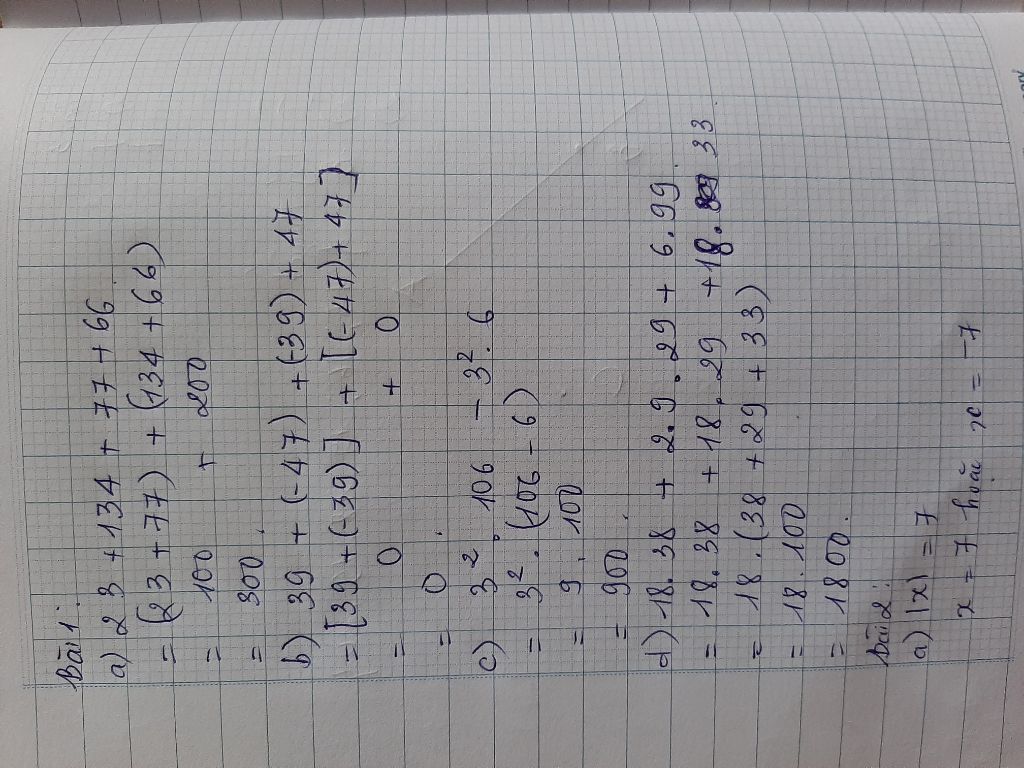 Bài 1:
a) 23 + 134 + 77 + 66
= (23 + 77) + (134 + 66)
= 100 + 200
= 300.
b) 39 + (-47) + (-39) + 47
= [39 + (-39)] + [(-47) + 47]
= 0 + 0
= 0.
c) 3². 106 - 3². 6
= 3². (106 - 6)
= 9. 100
= 900.
d) 18.38 + 2.9.29 + 6.99.
= 18.38 + 18.29 + 18. 33.
= 18.(38 + 29 + 33)
= 18.100
= 1800.
Bài 2:
a) |x| = 7
x = 7 hoặc x = -7